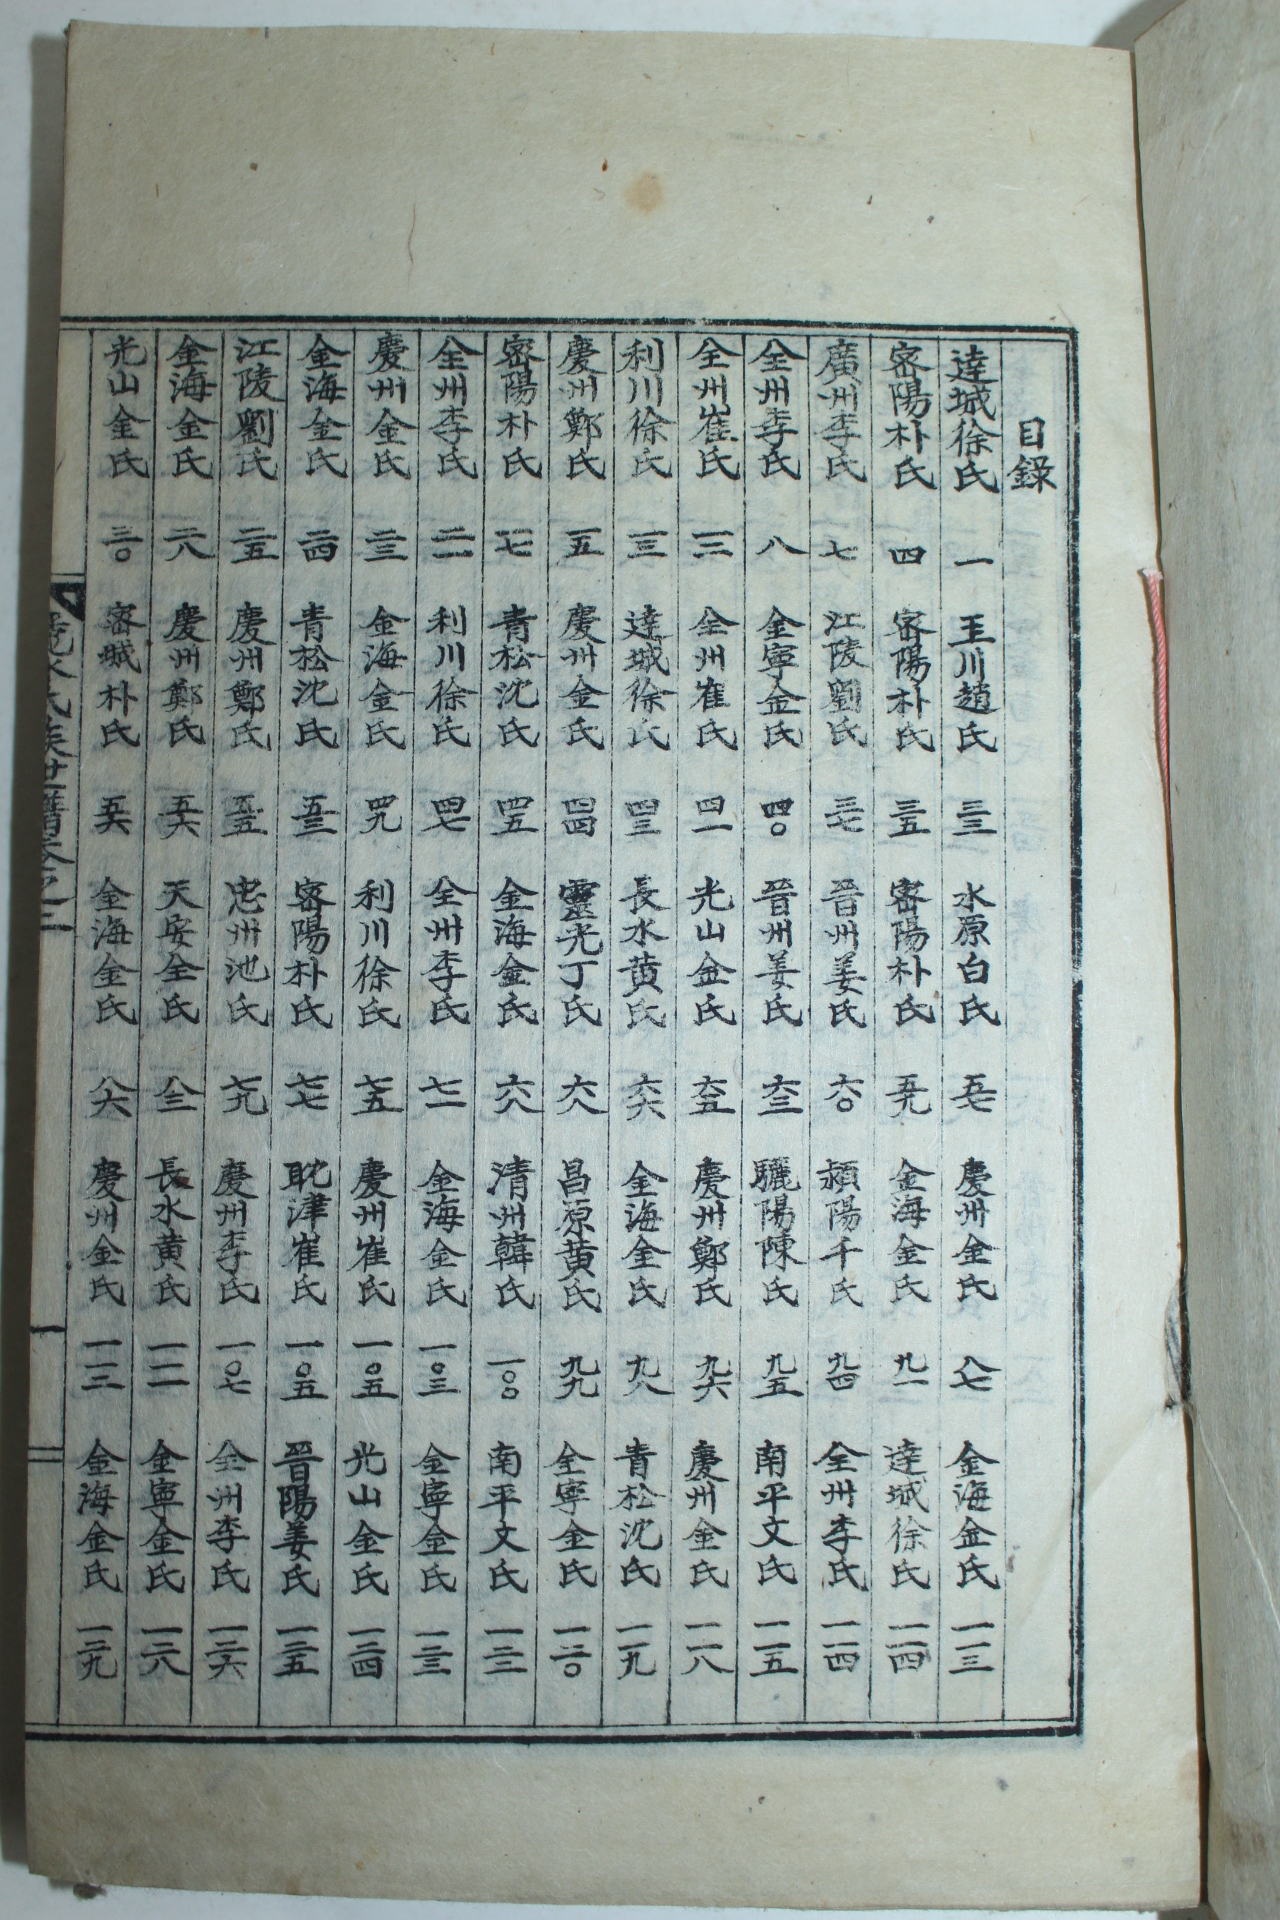 目錄
達城徐氏 一
密陽朴氏 四
廣州李氏 七
全州李氏 八
全州崔氏 一二
利川徐氏 一三
慶州鄭氏 一五
密陽朴氏 一七
全州李氏 二一
慶州金氏 二三
金海金氏 二四
江陵劉氏 二五
金海金氏 二八
光山金氏 三〇
王川趙氏 三三
密陽朴氏 三五
江陵劉氏 三七
金寧金氏 四〇
全州崔氏 四一
達城徐氏 四三
慶州金氏 四四
青松沈氏 四五
利川徐氏 四七
金海金氏 四九
青松沈氏 五三
慶州鄭氏 五五
慶州鄭氏 五六
密城朴氏 五六
水原白氏 五七
密陽朴氏 五九
晉州姜氏 六〇
晉州姜氏 六三
光山金氏 六五
長水黄氏 六六
靈光丁氏 六八
金海金氏 六八
全州李氏 七一
利川徐氏 七五
密陽朴氏 七七
忠州池氏 七九
天安全氏 八三
金海金氏 八六
慶州金氏 八七
金海金氏 九一
潁陽千氏 九四
驪陽陳氏 九五
慶州鄭氏 九六
金海金氏 九八
昌原黄氏 九九
清州韓氏 一〇〇
金海金氏 一〇三
慶州崔氏 一〇五
耽津崔氏 一〇五
慶州李氏 一〇七
長水黄氏 一一一
慶州金氏 一一二
金海金氏 一一三
達城徐氏 一一四
全州李氏 一一四
南平文氏 一一五
慶州金氏 一一八
青松沈氏 一一九
金寧金氏 一二〇
南平文氏 一二二
金寧金氏 一二三
光山金氏 一二四
晉陽姜氏 一二五
全州李氏 一二六
金寧金氏 一二八
金海金氏 一二九
氏族世譜卷之二 一